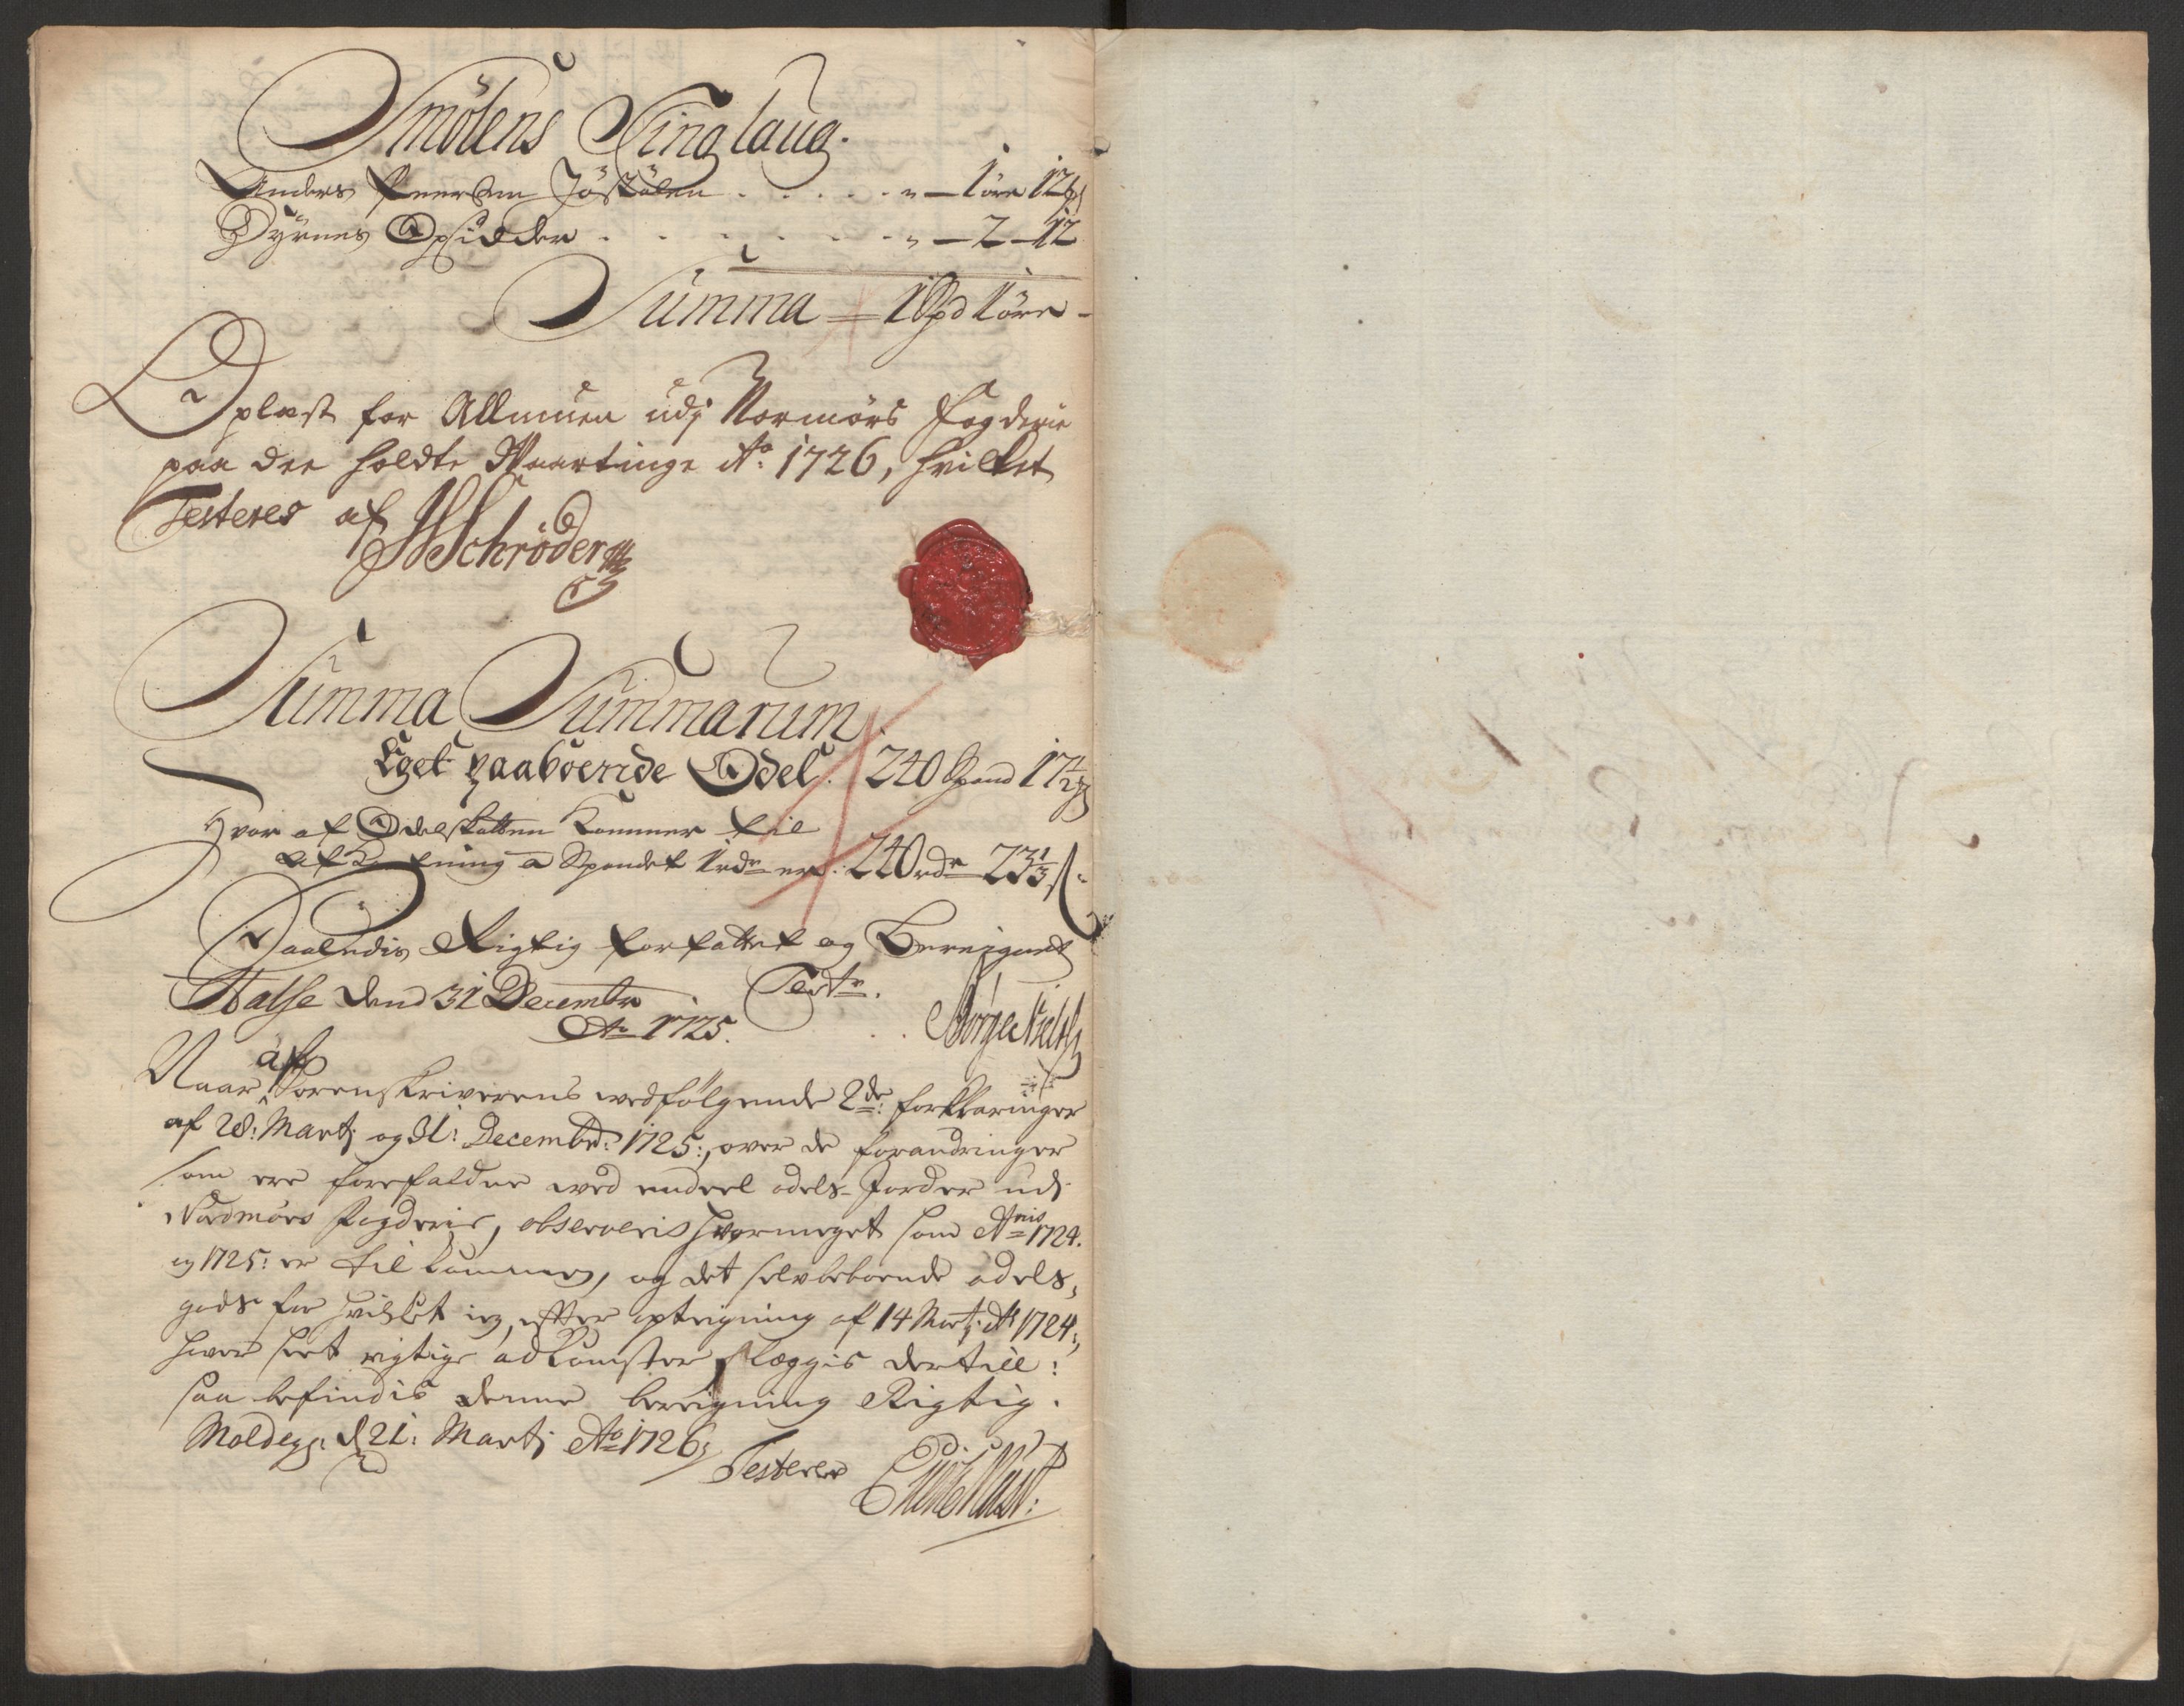 Smölens Tinglaug.
Anders Peersen Jöstölen . . . . . " — 1 öre 12
Dyrnes Opsidder . . . . . . . " — 2 — 12
Summa = 1 Spd 1 öre -
Oplæst for Allmuen udj Normörs Fogderie
paa dee holdte Waartinge Ao: 1726, hvilket
Testeres af Schröder
Summa Summarum
Eget paaboende Odel. 240 Spand 17 1/2
Hvor af Odelskatten Kommer til
a Spandet 1 rdr er: 240 rdr 23 1/3 s.
Saaledis Rigtig forfattet og Bereignet
Halse dend 31 Decembr Test.
Ao 1725. Börge Niels
Naar af Sorenskriverens wedfölgende 2de: forklaringer
af 28: Martj og 31: Decembr: 1725:, over de forandringer
som ere forefaldne wed endeel odels-Jorder udi
Nordmörs Fogderie, observeris hvormeget som Anis 1724.
og 1725: er tilkommen, og det selvbeboende odels,
gods for hvilket ieg, efter optegning af 14 Martj: Ao 1724:,
hver sert rigtige adkomster, lægges dertill:
saa befindis denne bereigning Rigtig.
Molde d 21: Martj Ao 1726
Testerer